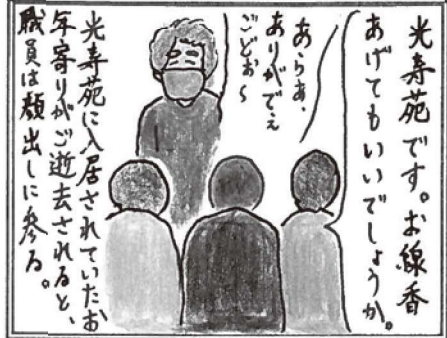 光寿苑です。お線香
あげてもいいでしょうか。
あらあ、
ありがでえ
ごどお~
光寿苑に入居されていたお
年寄りがご逝去されると、
職員は顔出しに参る。